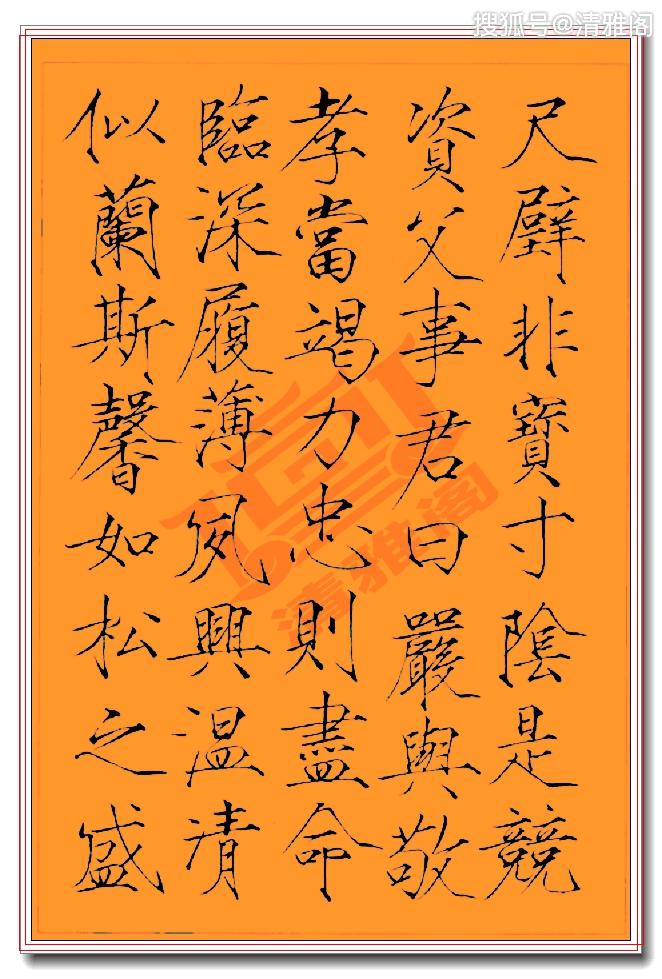 搜狐号@清雅阁
尺璧非寶寸陰是競
資父事君曰嚴與敬
孝當竭力忠則盡命
臨深履薄夙興温清
似蘭斯馨如松之盛
清雅阁